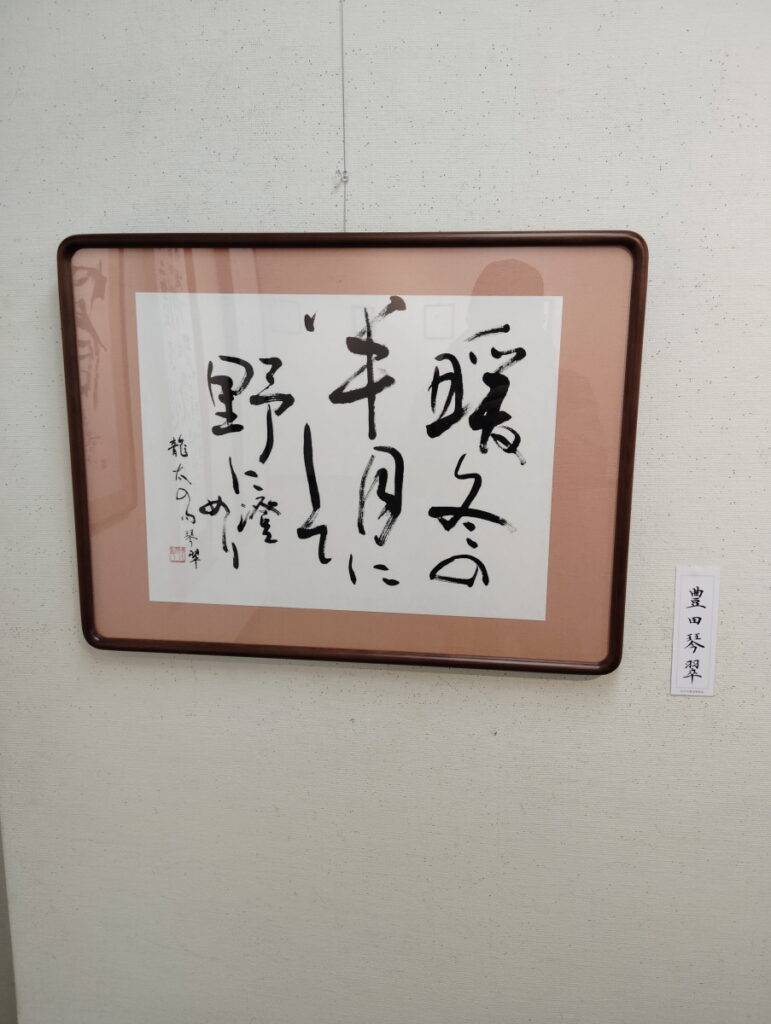 暖冬の
半月に
して
野に澄
めり
龍太の句 琴翠
豊田琴翠